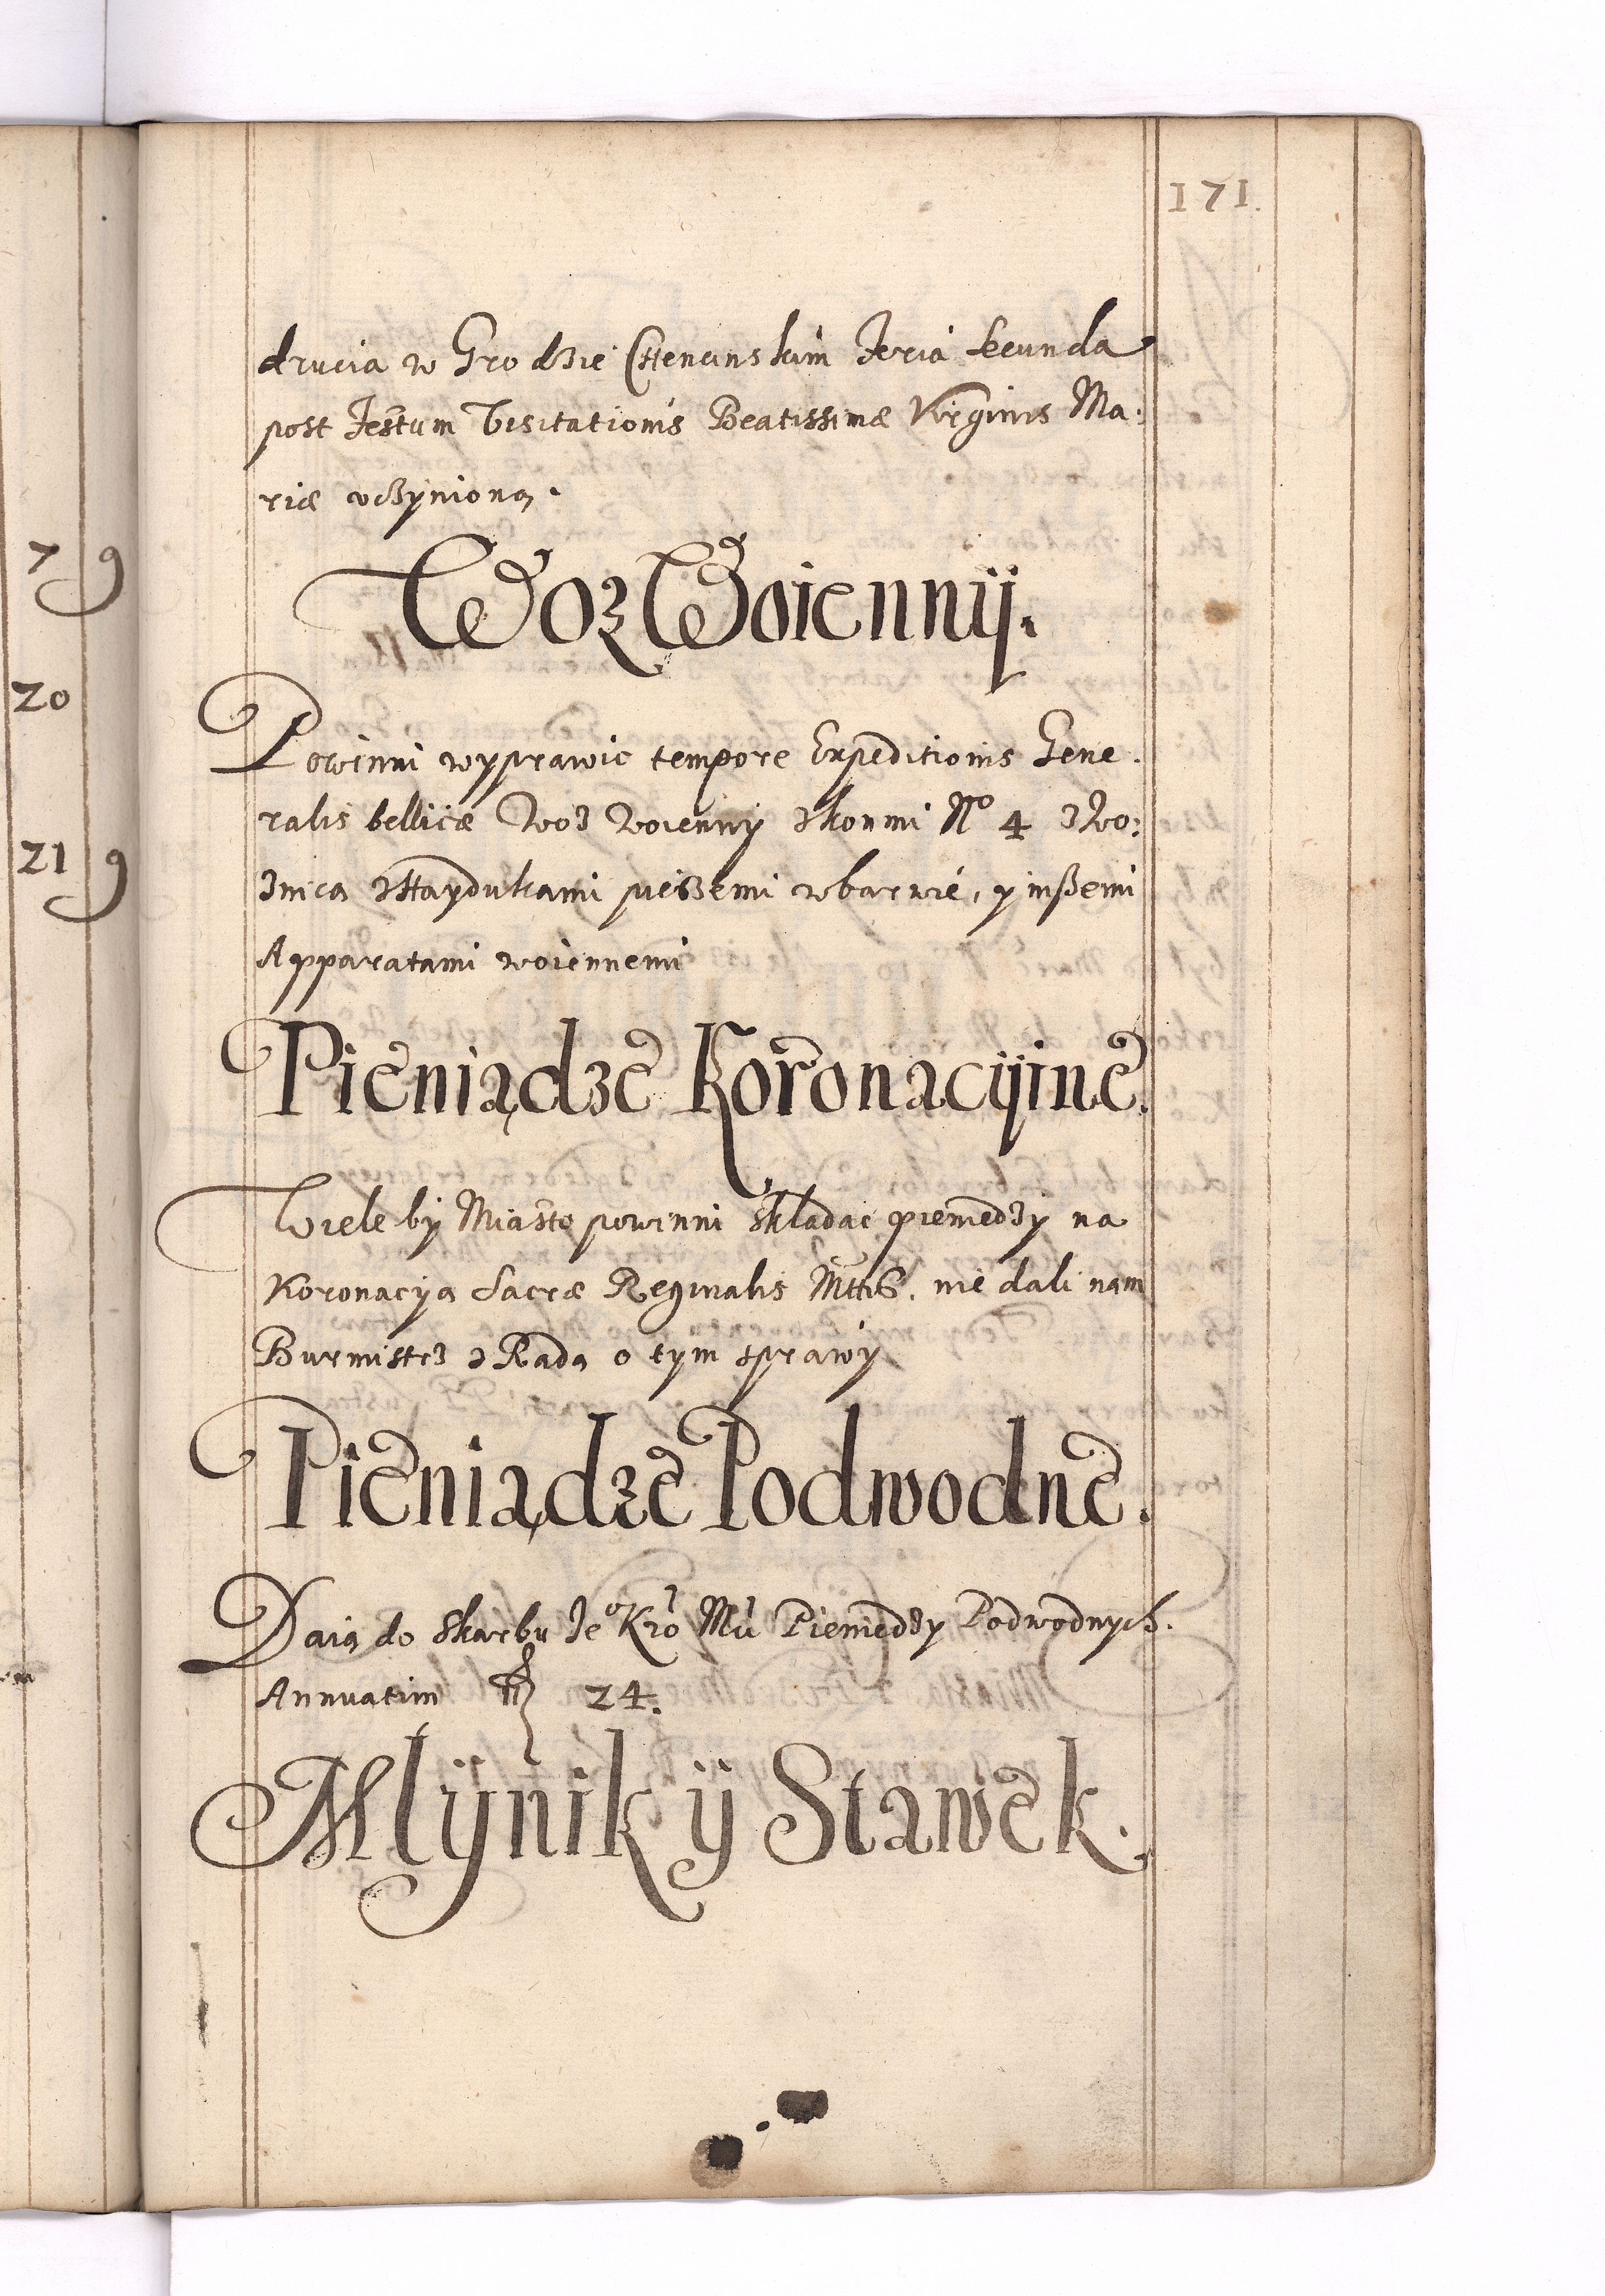 7 9
20
21 9
171.
drucia w Grodzie Chencinskim Feria secunda
post Festum Visitationis Beatissimæ Virginis Ma:
riæ uczyniona.
Woz Woiennÿ.
Powinni wyprawic tempore Expeditionis Gene:
ralis bellicæ woz woienny zkonmi No 4 zWo:
znica zHaydukami pieszemi wbarwie, y inszemi
Apparatami woiennemi
Pieniądze Koronacÿine.
Wiele by Miasto powinni skladac pieniędzy na
Koronacyą Sacræ Reginalis Mttis. nie dali nam
Burmistrz z Radą o tym sprawy
Pieniądze Podwodne.
Daią do Skarbu Je° Kro Mci Pieniędzy Podwodnych.
Annuatim 24.
Mlÿnik ÿ Stawek.